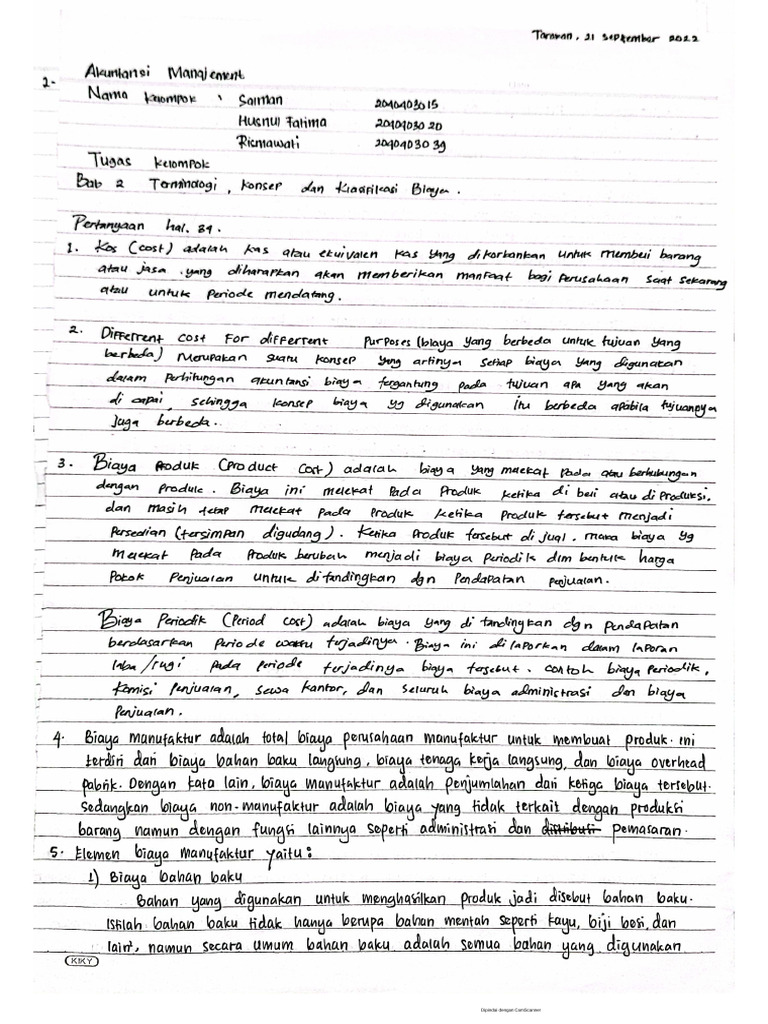 Tarakan, 21 September 2022
2-
Akuntansi Manajement
Nama Kelompok : Saiman 2040403015
Husnul Fatima 2040403020
Rismawati 2040403039
Tugas Kelompok
Bab 2 Terminologi, Konsep dan Klasifikasi Biaya.
Pertanyaan hal. 34.
1. Kos (cost) adalah kas atau ekuivalen kas yang dikorbankan untuk membeli barang
atau jasa yang diharapkan akan memberikan manfaat bagi perusahaan saat sekarang
atau untuk periode mendatang.
2. Differrent cost For differrent purposes (biaya yang berbeda untuk tujuan yang
berbeda) Merupakan suatu konsep yang artinya setiap biaya yang digunakan
dalam perhitungan akuntansi biaya tergantung pada tujuan apa yang akan
di capai, sehingga konsep biaya yg digunakan itu berbeda apabila tujuannya
juga berbeda.
3. Biaya Produk (Product Cost) adalah biaya yang melekat pada atau berhubungan
dengan produk. Biaya ini melekat pada produk ketika di beli atau di produksi,
dan masih tetap melekat pada produk ketika produk tersebut menjadi
Persedian (tersimpan digudang). Ketika produk tersebut di jual, maka biaya yg
melekat pada produk berubah menjadi biaya periodik dlm bentuk harga
Pokok Penjualan untuk ditandingkan dgn Pendapatan penjualan.
Biaya Periodik (Period cost) adalah biaya yang di tandingkan dgn pendapatan
berdasarkan Periode waktu terjadinya. Biaya ini dilaporkan dalam laporan
laba/rugi pada periode terjadinya biaya tersebut. contoh biaya periodik,
komisi penjualan, sewa kantor, dan seluruh biaya administrasi dan biaya
Penjualan.
4. Biaya manufaktur adalah total biaya perusahaan manufaktur untuk membuat produk. Ini
terdiri dari biaya bahan baku langsung, biaya tenaga kerja langsung, dan biaya overhead
pabrik. Dengan kata lain, biaya manufaktur adalah penjumlahan dari ketiga biaya tersebut.
Sedangkan biaya non-manufaktur adalah biaya yang tidak terkait dengan produksi
barang namun dengan fungsi lainnya seperti administrasi dan distributi pemasaran.
5. Elemen biaya manufaktur yaitu:
1) Biaya bahan baku
Bahan yang digunakan untuk menghasilkan produk jadi disebut bahan baku.
Istilah bahan baku tidak hanya berupa bahan mentah seperti kayu, biji besi, dan
lain², namun secara umum bahan baku adalah semua bahan yang digunakan
KIKY
Dipindai dengan CamScanner